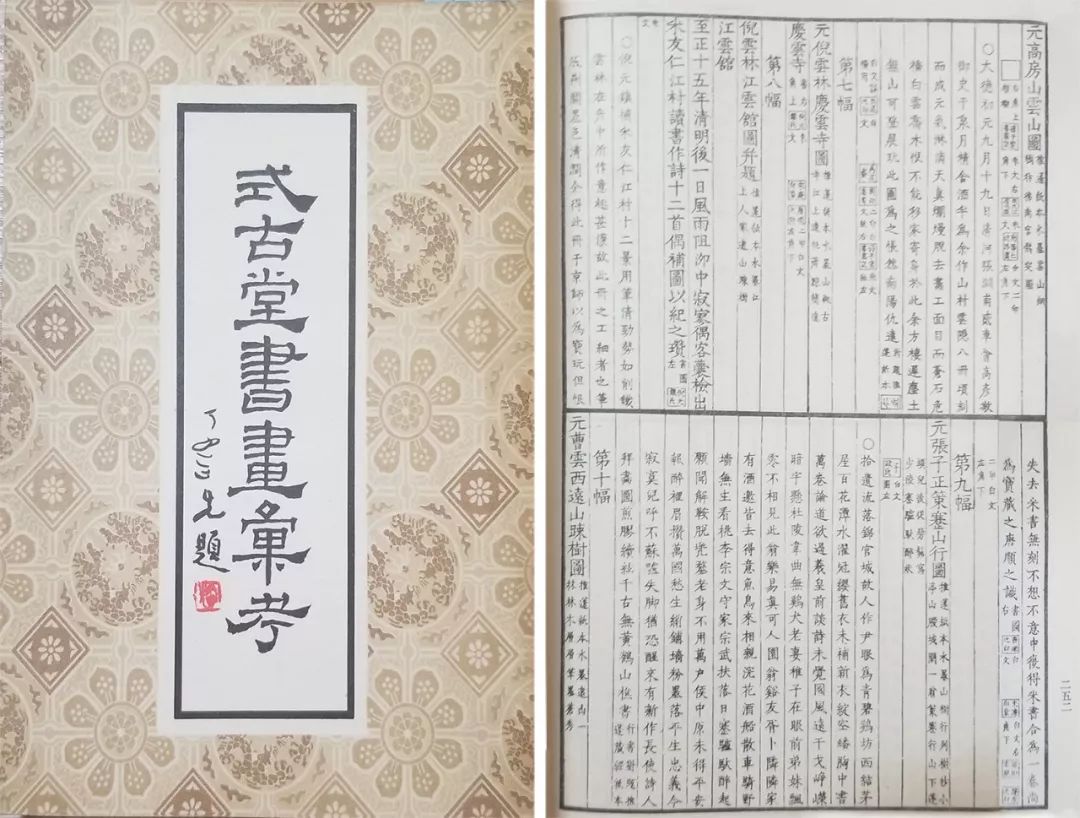 式古堂書畫彙考
丁念先題
元高房山雲山圖
○大德初元九月十九日清河張淵甫貳車會高彥敬
御史于泉月精舍酒半為余作山村雲隱八冊頃刻
而成元氣淋漓天真爛熳脫去畫工面目而蒼石
白雲喬木恨不能移家寄身於此余方棲遲塵土
無山可登展玩此圖為之悵然南陽仇遠
第七幅
元倪雲林慶雲寺圖
慶雲寺
第八幅
倪雲林江雲館圖并題
江雲館
至正十五年清明後一日風雨阻泖中寂寥偶客囊檢出
米友仁江村讀書作詩十二首偶補圖以紀之瓚
○倪元鎮補米友仁江村十二景用筆清勁勢如削鐵
雲林在中所作意甚復故此冊之工細者也筆
荊關墨色清潤今得此冊于京師以為寶玩但恨
失去米書無刻不想不意中復得米書合為一卷尚
為寶藏之庶願之識
第九幅
元張子正策蹇山行圖
○拾遺流落錦官城故人作尹眼為青碧鷄坊西結茅
屋百花潭水濯冠纓舊衣未補新衣綻空蟠胸中書
萬卷論道欲過羲皇前談詩未覺國風遠干戈崢嶸
暗宇縣杜陵韋曲無鷄犬老妻稚子在眼前弟妹飄
零不相見此翁樂易真可人園翁谿友肯卜隣隣家
有酒邀皆去得意魚鳥來相親浣花酒船散車騎野
墻無主看桃李宗文守家宗武扶落日蹇驢馱醉起
願聞解鞍脫兜鍪老身不用萬戶侯中原未得平安
報醉裡眉攢萬國愁生綃鋪墻粉墨落平生忠義今
寂寞兒呼不蘇驢失腳猶恐醒來有新作長使詩人
拜畫圖煎膠續絃千古無黃鶴山樵書
第十幅
元曹雲西遠山疎樹圖
二五二